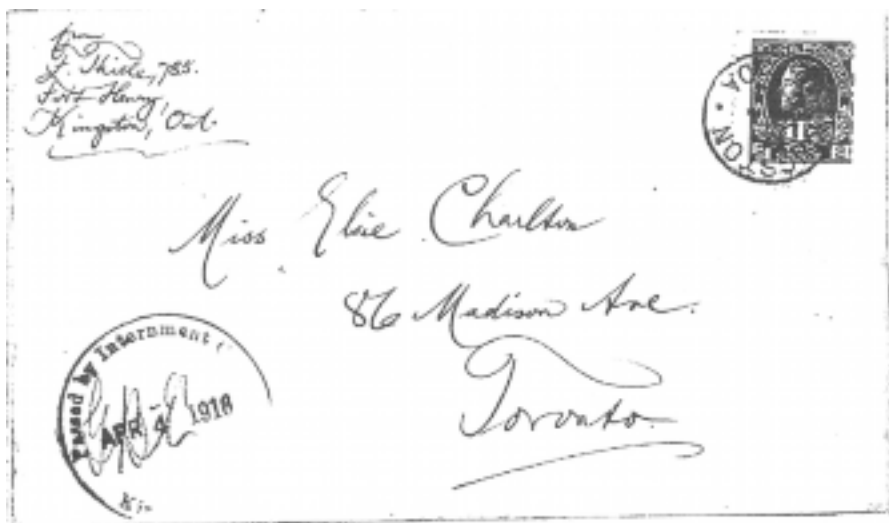 from
L. Thiele, 785.
Fort Henry,
Kingston, Ont.
STON
DA
1
Miss Elsie Charlton
86 Madison Ave.
Toronto
Passed by Internment
APR 4 1916
Ki